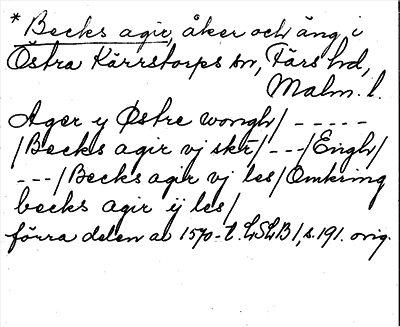 * Becks agir, åker och äng i
Östra Kärrstorps sn, Färs hd,
Malm. l.
Ager y Østre wongh/ -----
/Becks agir vj skr/ ---/Engh/
---/Becks agir vj les/Omkring
becks agir ij les/
förra delen av 1570-t. LSLB 1, s. 191. orig.